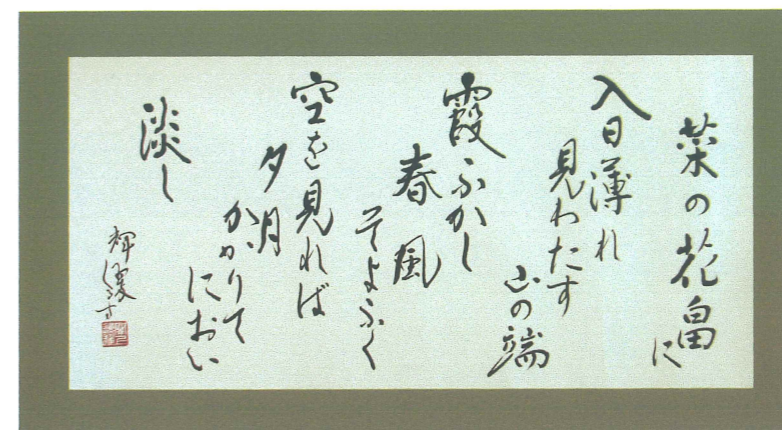 菜の花畠
に
入日薄れ
見わたす
山の端
霞ふかし
春風
そよふく
空を見れば
夕月
かかりて
におい
淡し